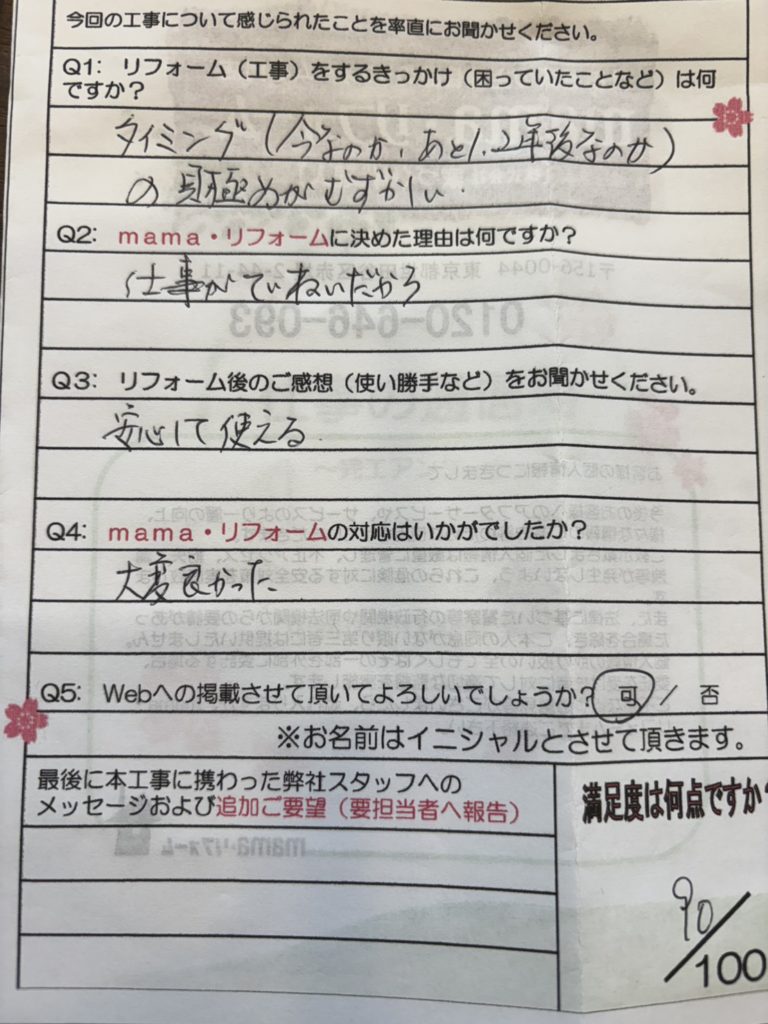 今回の工事について感じられたことを率直にお聞かせください。
Q1: リフォーム（工事）をするきっかけ（困っていたことなど）は何
ですか？
タイミング（今なのか、あと1.2年後なのか）
の見極めがむずかしい.
Q2: mama・リフォームに決めた理由は何ですか？
仕事がていねいだから
Q3: リフォーム後のご感想（使い勝手など）をお聞かせください。
安心して使える.
Q4: mama・リフォームの対応はいかがでしたか？
大変良かった
Q5: Webへの掲載させて頂いてよろしいでしょうか？ 可 / 否
※お名前はイニシャルとさせて頂きます。
最後に本工事に携わった弊社スタッフへの
メッセージおよび追加ご要望（要担当者へ報告）
満足度は何点ですか?
90/100